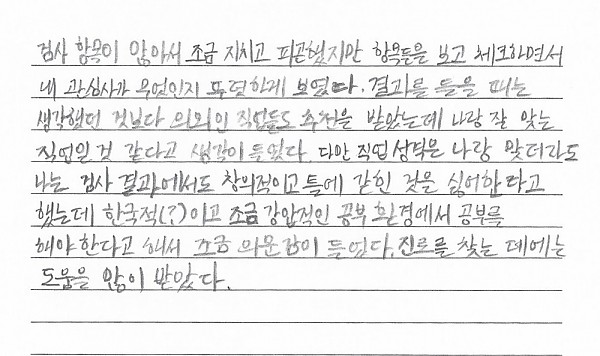 검사 항목이 많아서 조금 지치고 피곤했지만 항목들을 보고 체크하면서
내 관심사가 무엇인지 뚜렷하게 보였다. 결과를 들을 때는
생각했던 것보다 의외인 직업들도 추천을 받았는데 나랑 잘 맞는
직업인 것 같다고 생각이 들었다. 다만 직업 성택은 나랑 맞더라도
나는 검사 결과에서도 창의적이고 틀에 갇힌 것을 싫어한다고
했는데 한국적(?)이고 조금 강압적인 공부 환경에서 공부를
해야 한다고 해서 조금 의문감이 들었다. 진로를 찾는 데에는
도움을 많이 받았다.